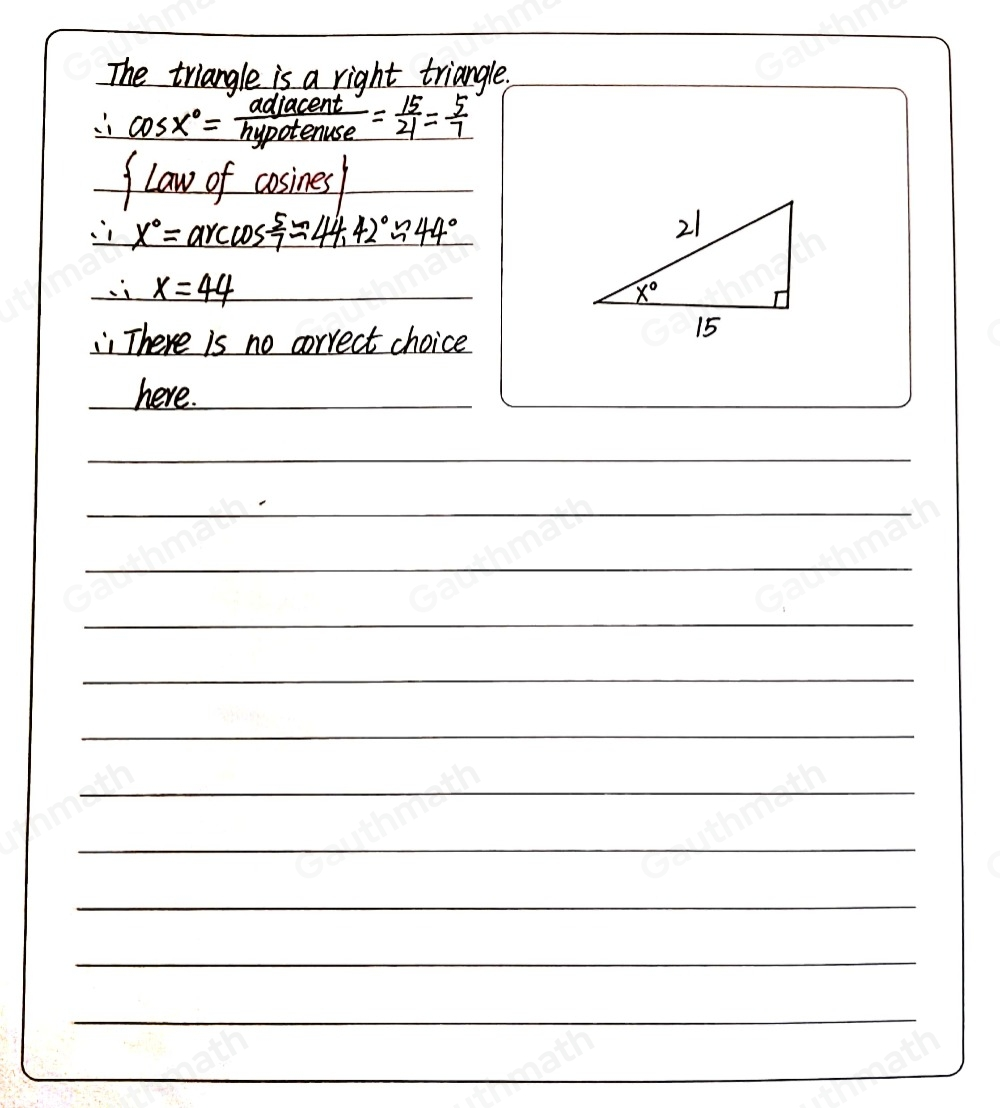 The triangle is a right triangle.
∴ cosx° = adjacent/hypotenuse = 15/21 = 5/7
{Law of cosines}
∴ x° = arccos 5/7 ≈ 44.42° ≈ 44°
∴ x = 44
∴ There is no correct choice
here.
21
x°
15
Gauthmath